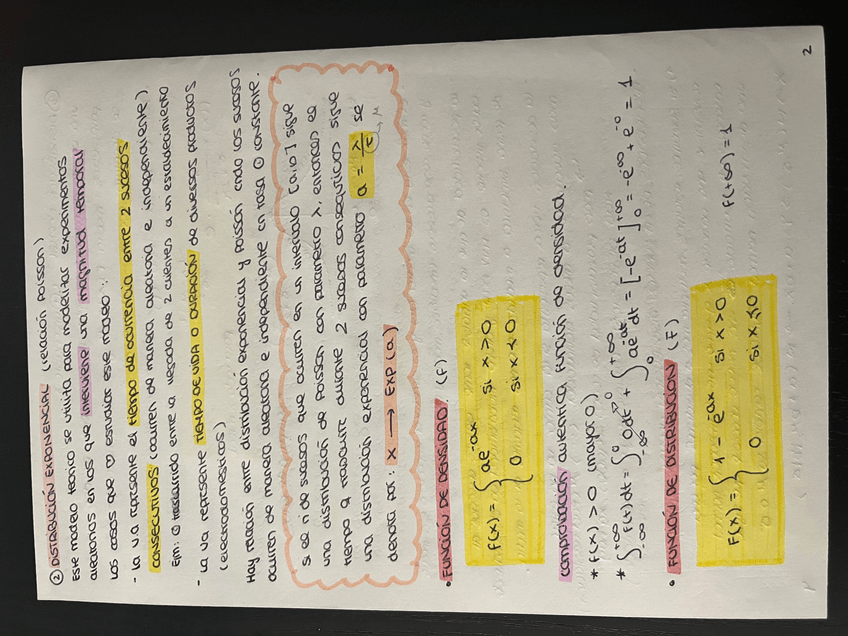 ② DISTRIBUCIÓN EXPONENCIAL (relación poisson)
Este modelo teórico se utiliza para modelizar experimentos
aleatorios en los que interviene una magnitud temporal
Los casos que vo estudiar este modelo:
- La v.a represente el tiempo de ocurrencia entre 2 sucesos
consecutivos (ocurren de manera aleatoria e independiente).
Ejm: entre la llegada de 2 clientes a un establecimiento
- La va represente tiempo de vida o duración de diversos productos
(electrodomésticos)
Hay relación entre distribución exponencial y poisson cndo los sucesos
ocurren de manera aleatoria e independiente cn tasa constante.
si el n de sucesos que ocurren en un intervalo [a,b] sigue
una distribución de Poisson con parámetro λ, entonces el
tiempo q transcurre durante 2 sucesos consecutivos sigue
una distribución exponencial con parámetro a = λ/t se
denota por: X → Exp(a)
• FUNCIÓN DE DENSIDAD. (f)
f(x) = { ae^-ax si x>0
0 si x≤0
comprobación auténtica función de densidad.
* f(x) > 0 (mayor 0)
* ∫_-∞^+∞ f(t)dt = ∫_-∞^0 0dt + ∫_0^+∞ ae^-at dt = [-e^-at]_0^+∞ = -e^-∞ + e^-0 = 1.
• FUNCIÓN DE DISTRIBUCIÓN (F)
F(x) = { 1 - e^-ax si x>0
0 si x≤0
F(+∞) = 1
2